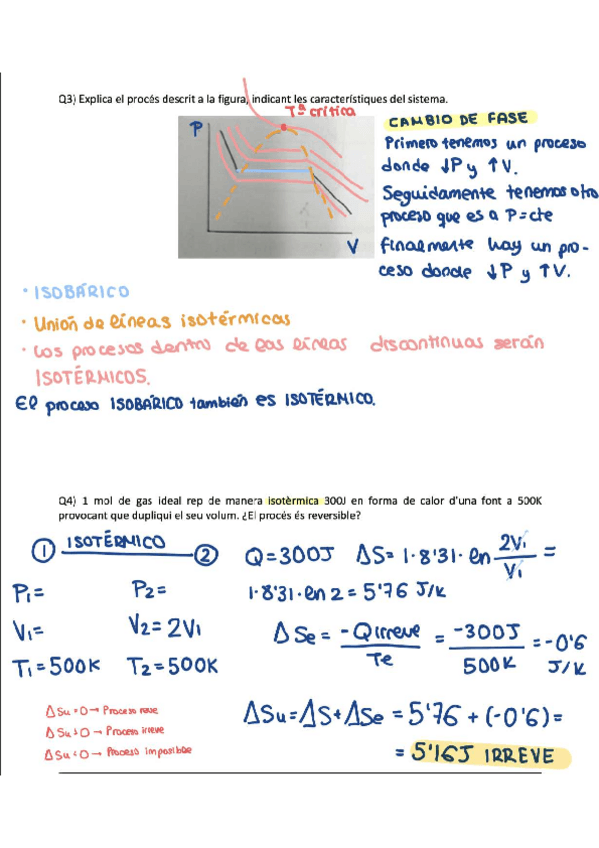 Q3) Explica el procés descrit a la figura, indicant les característiques del sistema.
Tª crítica
P
V
CAMBIO DE FASE
Primero tenemos un proceso
donde ↓P y ↑V.
Seguidamente tenemos otro
proceso que es a P=cte
Finalmente hay un pro-
ceso donde ↓P y ↑V.
· ISOBÁRICO
· Unión de líneas isotérmicas
· Los procesos dentro de las líneas discontinuas serán
ISOTÉRMICOS.
El proceso ISOBÁRICO también es ISOTÉRMICO.
Q4) 1 mol de gas ideal rep de manera isotèrmica 300J en forma de calor d'una font a 500K
provocant que dupliqui el seu volum. ¿El procés és reversible?
① ISOTÉRMICO ②
P₁=
P₂=
V₁=
V₂=2V₁
T₁=500K
T₂=500K
Q=300J ΔS=1·8'31·ln 2V₁/V₁ =
1·8'31·ln 2=5'76 J/K
ΔSe = -Qirreve/Te = -300J/500K = -0'6 J/K
ΔSu=0→Proceso reve
ΔSu>0→Proceso irreve
ΔSu<0→Proceso imposible
ΔSu=ΔS+ΔSe = 5'76+(-0'6)=
= 5'16J IRREVE